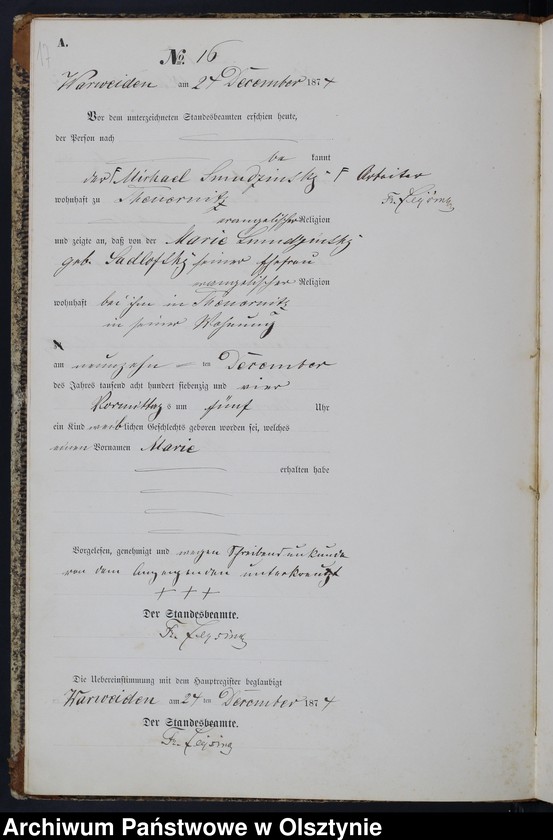 17
A.
No. 16
Warweiden am 24 December 1874
Vor dem unterzeichneten Standesbeamten erschien heute,
der Person nach
be kannt
der Γ Michael Γ Arbeiter
wohnhaft zu Thanornitz
evangelischer Religion
und zeigte an, daß von der Marie
geb. Sadlofsky seiner Ehefrau
evangelischer Religion
wohnhaft bei ihm in Thanornitz
in seiner Wohnung
am neunzehn ten December
des Jahres tausend acht hundert siebenzig und vier
Vormittag s um fünf Uhr
ein Kind weiblichen Geschlechts geboren worden sei, welches
einen Vornamen Marie
erhalten habe
Vorgelesen, genehmigt und wegen Schreibensunkunde
von dem Anzeigenden unterkreuzt
+ + +
Der Standesbeamte.
Fr.
Die Uebereinstimmung mit dem Hauptregister beglaubigt
Warweiden am 24 ten December 1874
Der Standesbeamte.
Fr.
Archiwum Państwowe w Olsztynie